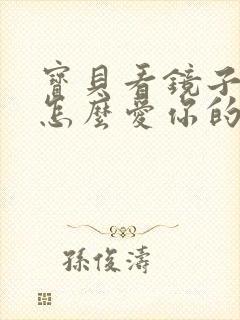 寶貝看鏡子
怎麼愛你的
孫俊濤